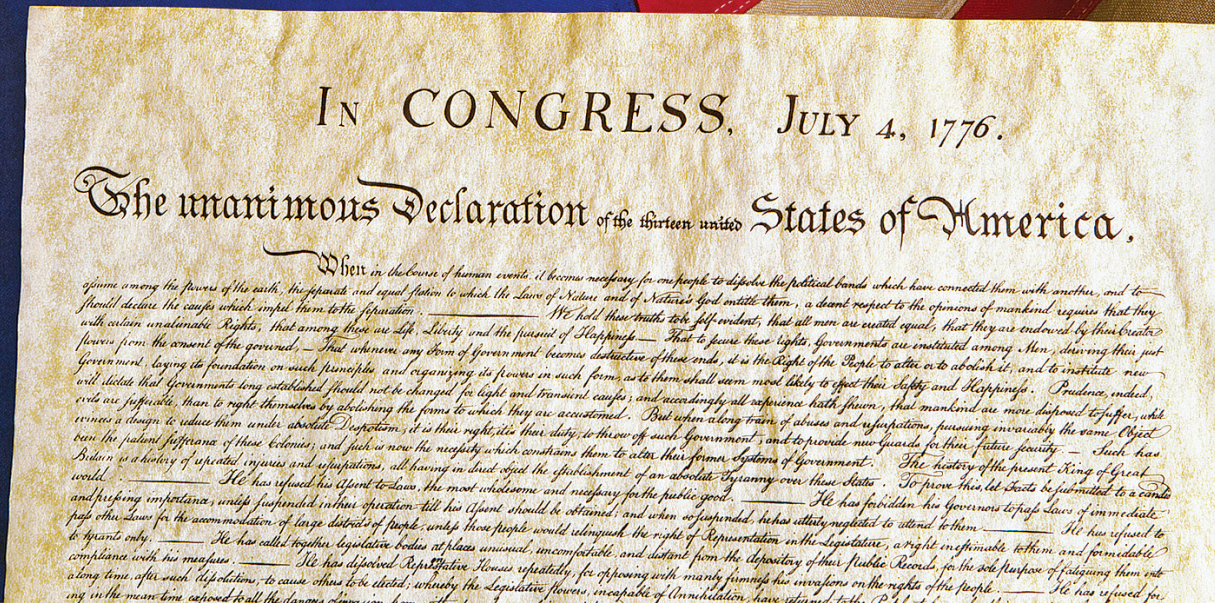 In CONGRESS, July 4, 1776.
The unanimous Declaration of the thirteen united States of America,
When in the Course of human events, it becomes necessary for one people to dissolve the political bands which have connected them with another, and to
assume among the powers of the earth, the separate and equal station to which the Laws of Nature and of Nature's God entitle them, a decent respect to the opinions of mankind requires that they
should declare the causes which impel them to the separation. ——— We hold these truths to be self-evident, that all men are created equal, that they are endowed by their Creator
with certain unalienable Rights, that among these are Life, Liberty and the pursuit of Happiness — That to secure these rights, Governments are instituted among Men, deriving their just
powers from the consent of the governed, — That whenever any Form of Government becomes destructive of these ends, it is the Right of the People to alter or to abolish it, and to institute new
Government, laying its foundation on such principles and organizing its powers in such form, as to them shall seem most likely to effect their Safety and Happiness. Prudence, indeed,
will dictate that Governments long established should not be changed for light and transient causes; and accordingly all experience hath shewn, that mankind are more disposed to suffer, while
evils are sufferable, than to right themselves by abolishing the forms to which they are accustomed. But when a long train of abuses and usurpations, pursuing invariably the same Object
evinces a design to reduce them under absolute Despotism, it is their right, it is their duty, to throw off such Government, and to provide new Guards for their future security. — Such has
been the patient sufferance of these Colonies; and such is now the necessity which constrains them to alter their former Systems of Government. The history of the present King of Great
Britain is a history of repeated injuries and usurpations, all having in direct object the establishment of an absolute Tyranny over these States. To prove this, let Facts be submitted to a candid
world. ——— He has refused his Assent to Laws, the most wholesome and necessary for the public good. ——— He has forbidden his Governors to pass Laws of immediate
and pressing importance, unless suspended in their operation till his Assent should be obtained; and when so suspended, he has utterly neglected to attend to them ——— He has refused to
pass other Laws for the accommodation of large districts of people, unless those people would relinquish the right of Representation in the Legislature, a right inestimable to them and formidable
to tyrants only. ——— He has called together legislative bodies at places unusual, uncomfortable, and distant from the depository of their public Records, for the sole purpose of fatiguing them into
compliance with his measures. ——— He has dissolved Representative Houses repeatedly, for opposing with manly firmness his invasions on the rights of the people. ——— He has refused for
a long time, after such dissolutions, to cause others to be elected; whereby the Legislative powers, incapable of Annihilation, have returned to the
ing in the mean time exposed to all the dangers of invasion